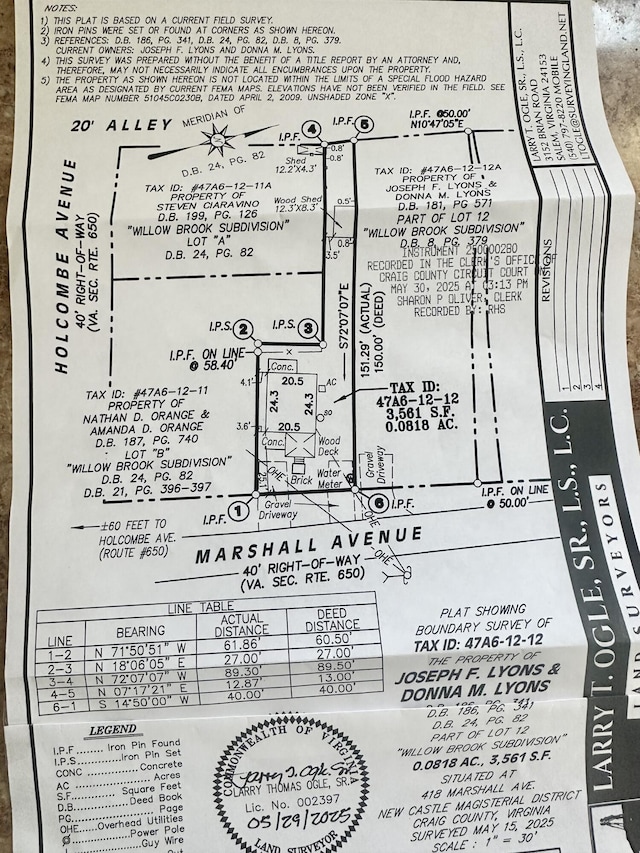 NOTES:
1) THIS PLAT IS BASED ON A CURRENT FIELD SURVEY.
2) IRON PINS WERE SET OR FOUND AT CORNERS AS SHOWN HEREON.
3) REFERENCES: D.B. 186, PG. 341, D.B. 24, PG. 82, D.B. 8, PG. 379.
CURRENT OWNERS: JOSEPH F. LYONS AND DONNA M. LYONS.
4) THIS SURVEY WAS PREPARED WITHOUT THE BENEFIT OF A TITLE REPORT BY AN ATTORNEY AND,
THEREFORE, MAY NOT NECESSARILY INDICATE ALL ENCUMBRANCES UPON THE PROPERTY.
5) THE PROPERTY AS SHOWN HEREON IS NOT LOCATED WITHIN THE LIMITS OF A SPECIAL FLOOD HAZARD
AREA AS DESIGNATED BY CURRENT FEMA MAPS. ELEVATIONS HAVE NOT BEEN VERIFIED IN THE FIELD. SEE
FEMA MAP NUMBER 51045C0230B, DATED APRIL 2, 2009. UNSHADED ZONE "X".
20' ALLEY
MERIDIAN OF
D.B. 24, PG. 82
I.P.F.
4
5
I.P.F. @50.00'
N10°47'05"E
0.8'
0.8'
Shed
12.2'X4.3'
HOLCOMBE AVENUE
40' RIGHT-OF-WAY
(VA. SEC. RTE. 650)
TAX ID: #47A6-12-11A
PROPERTY OF
STEVEN CIARAVINO
D.B. 199, PG. 126
"WILLOW BROOK SUBDIVISION"
LOT "A"
D.B. 24, PG. 82
Wood Shed
12.3'X8.3'
0.5'
0.8'
3.5'
TAX ID: #47A6-12-12A
PROPERTY OF
JOSEPH F. LYONS &
DONNA M. LYONS
D.B. 181, PG 571
PART OF LOT 12
"WILLOW BROOK SUBDIVISION"
D.B. 8, PG. 379
INSTRUMENT 250000280
RECORDED IN THE CLERK'S OFFICE OF
CRAIG COUNTY CIRCUIT COURT ON
MAY 30, 2025 AT 03:13 PM
SHARON P OLIVER, CLERK
RECORDED BY: RHS
S72°07'07"E
151.29' (ACTUAL)
150.00' (DEED)
I.P.S.
2
I.P.S.
3
I.P.F. ON LINE
@ 58.40'
Conc.
4.1'
20.5
AC
24.3
24.3
20.5
3.6'
Conc.
Wood
Deck
Brick
Water
Meter
OHE
Gravel
Driveway
TAX ID:
47A6-12-12
3,561 S.F.
0.0818 AC.
TAX ID: #47A6-12-11
PROPERTY OF
NATHAN D. ORANGE &
AMANDA D. ORANGE
D.B. 187, PG. 740
LOT "B"
"WILLOW BROOK SUBDIVISION"
D.B. 24, PG. 82
D.B. 21, PG. 396-397
I.P.F.
1
Gravel
Driveway
6
I.P.F.
OHE
OHE
I.P.F. ON LINE
@ 50.00'
±60 FEET TO
HOLCOMBE AVE.
(ROUTE #650)
MARSHALL AVENUE
40' RIGHT-OF-WAY
(VA. SEC. RTE. 650)
LINE TABLE
LINE BEARING ACTUAL DISTANCE DEED DISTANCE
1-2 N 71°50'51" W 61.86' 60.50'
2-3 N 18°06'05" E 27.00' 27.00'
3-4 N 72°07'07" W 89.30' 89.50'
4-5 N 07°17'21" E 12.87' 13.00'
6-1 S 14°50'00" W 40.00' 40.00'
LEGEND
I.P.F........ Iron Pin Found
I.P.S........ Iron Pin Set
CONC ........ Concrete
AC ........ Acres
S.F........ Square Feet
D.B........ Deed Book
PG........ Page
OHE........ Overhead Utilities
........ Power Pole
........ Guy Wire
COMMONWEALTH OF VIRGINIA
Larry T. Ogle, Sr.
LARRY THOMAS OGLE, SR.
Lic. No. 002397
05/29/2025
LAND SURVEYOR
PLAT SHOWING
BOUNDARY SURVEY OF
TAX ID: 47A6-12-12
THE PROPERTY OF
JOSEPH F. LYONS &
DONNA M. LYONS
D.B. 186, PG. 341
D.B. 24, PG. 82
PART OF LOT 12
"WILLOW BROOK SUBDIVISION"
0.0818 AC., 3,561 S.F.
SITUATED AT
418 MARSHALL AVE.
NEW CASTLE MAGISTERIAL DISTRICT
CRAIG COUNTY, VIRGINIA
SURVEYED MAY 15, 2025
SCALE : 1" = 30'
LARRY T. OGLE, SR., L.S., L.C.
3152 BRIAN ROAD
SALEM, VIRGINIA 24153
(540) 797-8220 MOBILE
LTOGLE@SURVEYINGLAND.NET
REVISIONS
1
2
3
4
LARRY T. OGLE, SR., L.S., L.C.
LAND SURVEYORS